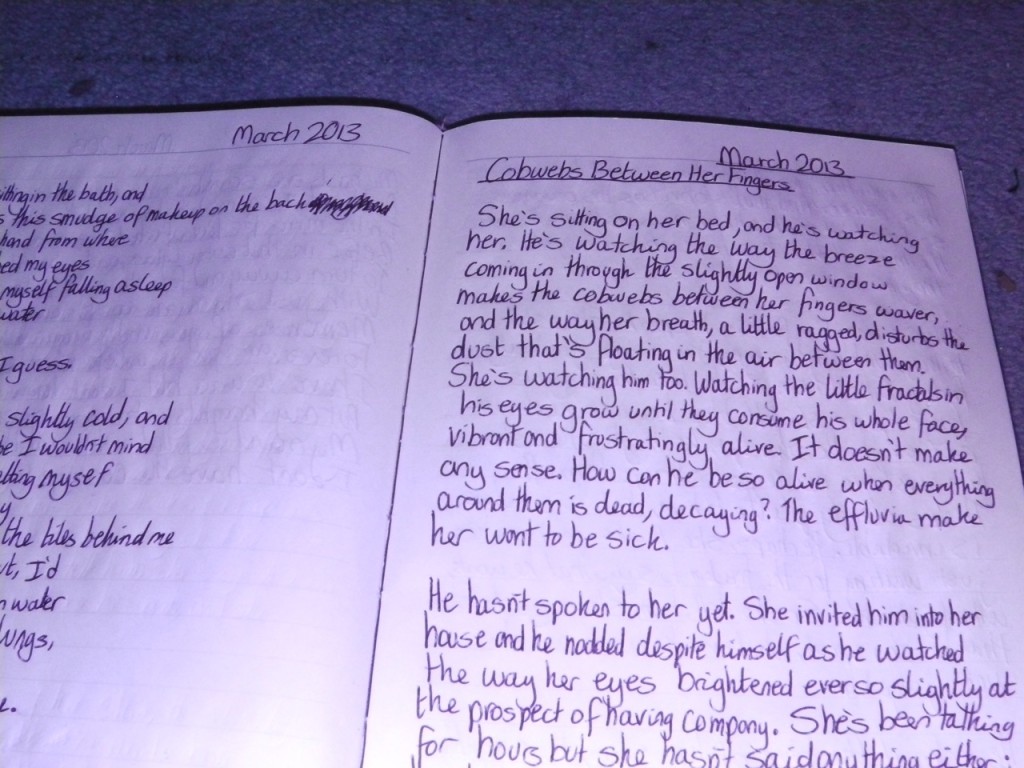 March 2013
in the bath, and
this smudge of makeup on the back
hand from where
my eyes
myself falling asleep
water
I guess.
slightly cold, and
I wouldn't mind
myself
the tiles behind me
I'd
water
lungs,
March 2013
Cobwebs Between Her Fingers
She's sitting on her bed, and he's watching
her. He's watching the way the breeze
coming in through the slightly open window
makes the cobwebs between her fingers waver,
and the way her breath, a little ragged, disturbs the
dust that's floating in the air between them.
She's watching him too. Watching the little fractals in
his eyes grow until they consume his whole face,
vibrant and frustratingly alive. It doesn't make
any sense. How can he be so alive when everything
around them is dead, decaying? The effluvia make
her want to be sick.
He hasn't spoken to her yet. She invited him into her
house and he nodded despite himself as he watched
the way her eyes brightened ever so slightly at
the prospect of having company. She's been talking
for hours but she hasn't said anything either: